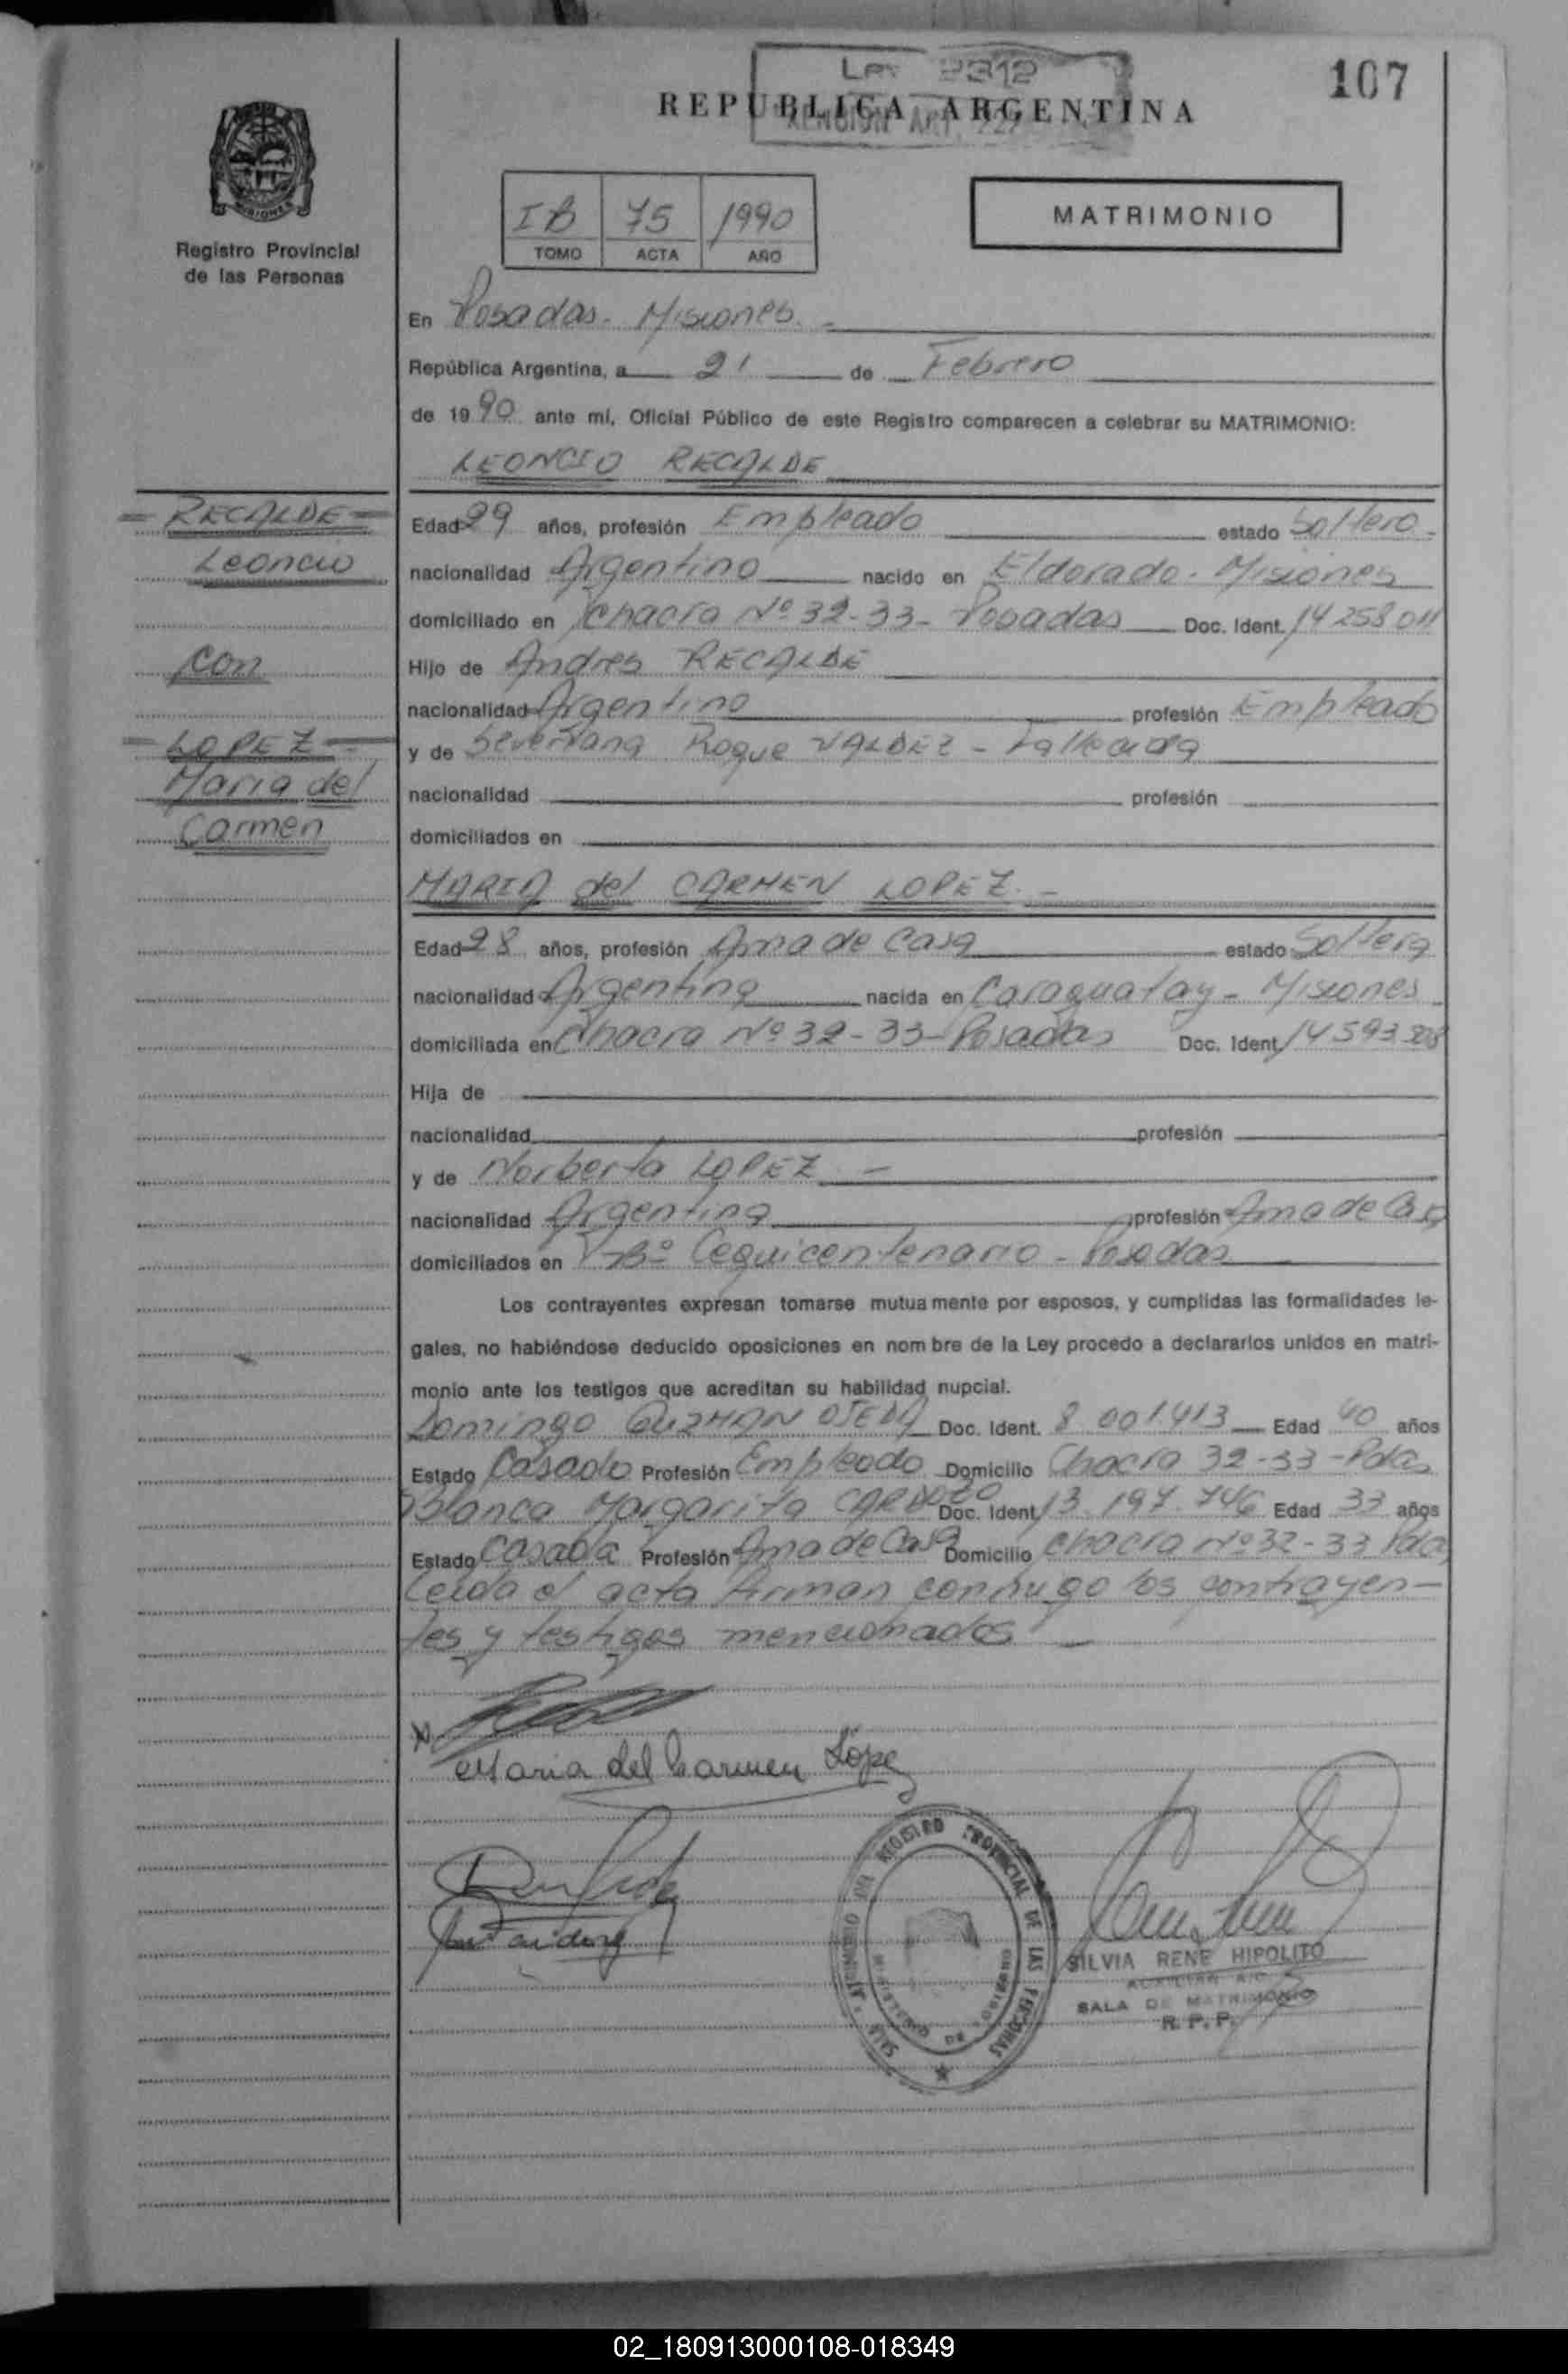 107
Ley 2312
REPUBLICA ARGENTINA
MISIONES
Registro Provincial
de las Personas
IB 75 1990
TOMO ACTA AÑO
MATRIMONIO
En Posadas - Misiones. -
República Argentina, a 21 de Febrero
de 1990 ante mí, Oficial Público de este Registro comparecen a celebrar su MATRIMONIO:
LEONCIO RECALDE
= RECALDE =
Leoncio
con
= LOPEZ =
Maria del
Carmen
Edad 29 años, profesión Empleado estado Soltero -
nacionalidad Argentino nacido en Eldorado - Misiones
domiciliado en Chacra Nº 32-33- Posadas Doc. Ident. 14 258 011
Hijo de Andres RECALDE
nacionalidad Argentino profesión Empleado
y de Severiana Roque VALDEZ - Fallecida
nacionalidad profesión
domiciliados en
MARIA del CARMEN LOPEZ. -
Edad 28 años, profesión Ama de Casa estado Soltera
nacionalidad Argentina nacida en Caraguatay - Misiones
domiciliada en Chacra Nº 32-33- Posadas Doc. Ident. 14 593 308
Hija de
nacionalidad profesión
y de Norberta LOPEZ -
nacionalidad Argentina profesión Ama de Casa
domiciliados en Bº Cequicentenario - Posadas
Los contrayentes expresan tomarse mutuamente por esposos, y cumplidas las formalidades le-
gales, no habiéndose deducido oposiciones en nombre de la Ley procedo a declararlos unidos en matri-
monio ante los testigos que acreditan su habilidad nupcial.
Domingo GUZMAN OJEDA Doc. Ident. 8 001.413 Edad 40 años
Estado Casado Profesión Empleado Domicilio Chacra 32-33-Pdas
Blanca Margarita CARDOZO Doc. Ident. 13.197.746 Edad 33 años
Estado Casada Profesión Ama de Casa Domicilio Chacra Nº 32-33 Pdas
Leida el acta firman conmigo los contrayen-
tes y testigos mencionados -
Maria del Carmen Lopez
REGISTRO PROVINCIAL DE LAS PERSONAS
MINISTERIO DE GOBIERNO
SILVIA RENE HIPOLITO
AUXILIAR A/C
SALA DE MATRIMONIO
R. P. P.
02_180913000108-018349